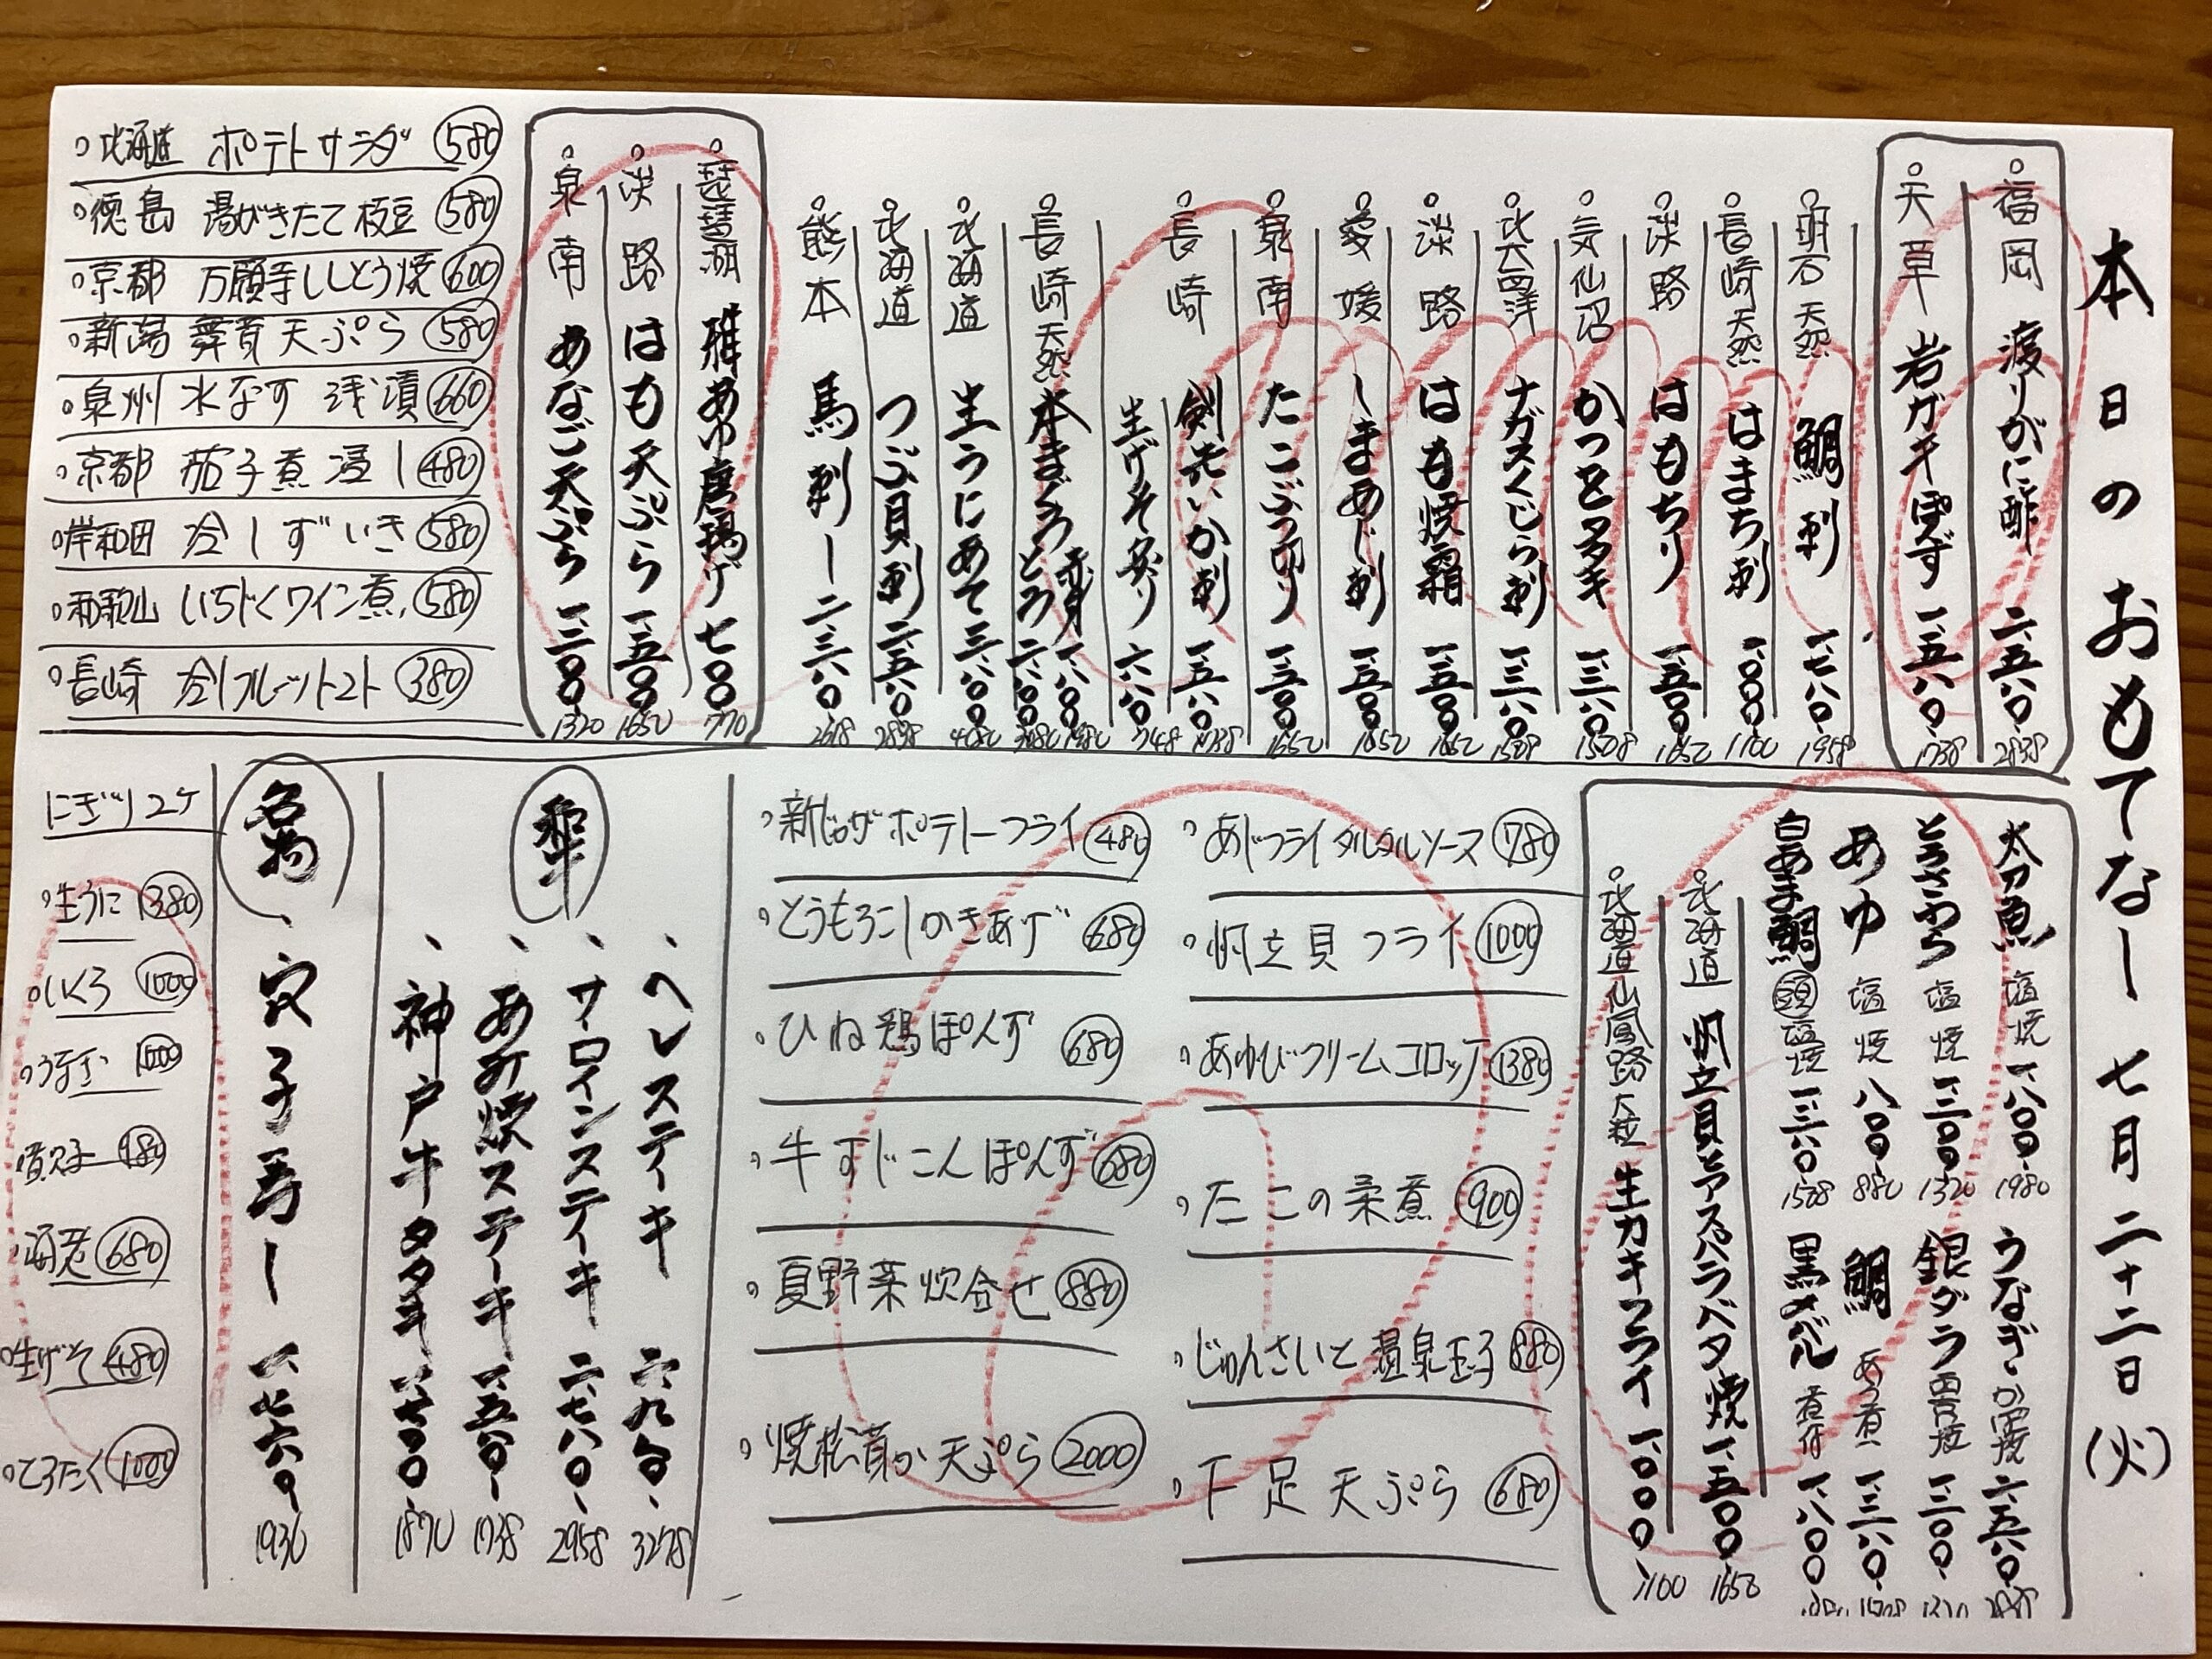 本日のおもてなし 七月二十二日(火)
福岡 渡りがに酢 二、五八〇 2838
天草 岩ガキぽんず 一、五八〇 1738
明石 天然 鯛刺 一、七八〇 1958
長崎 天然 はまち刺 一、〇〇〇 1100
淡路 はもちり 一、五〇〇 1650
気仙沼 かつをタタキ 一、三八〇 1518
北大西洋 ナガスくじら刺 一、三八〇 1518
淡路 はも焼霜 一、五〇〇 1650
愛媛 しまあじ刺 一、五〇〇 1650
泉南 たこぶつ切り 一、五〇〇 1650
長崎 剣先いか刺 一、五八〇 1738
生げそ造り 六八〇 748
長崎 天然 本まぐろ 赤身 一、八〇〇 1980
とろ 二、八〇〇 3080
北海道 生うにあて 三、八〇〇 4180
北海道 つぶ貝刺 二、五八〇 2838
熊本 馬刺し 二、三八〇 2618
琵琶湖 稚あゆ唐揚げ 七〇〇 770
淡路 はも天ぷら 一、五〇〇 1650
泉南 あなご天ぷら 一、二〇〇 1320
北海道 ポテトサラダ 580
徳島 湯がきたて枝豆 580
京都 万願寺ししとう焼 600
新潟 舞茸天ぷら 580
泉州 水なす 浅漬 660
京都 茄子煮浸し 480
岸和田 冷しずいき 580
和歌山 いちじくワイン煮 580
長崎 冷しフルーツトマト 380
太刀魚 塩焼 一、八〇〇 1980
とろさわら 塩焼 一、二〇〇 1320
あゆ 塩焼 八〇〇 880
白あま鯛 頭 塩焼 一、三八〇 1518
うなぎ 二、五八〇 2838
銀ダラ 西京焼 一、二〇〇
鯛 あら煮
黒メバル 煮付 一、八〇〇
北海道 帆立貝とアスパラバタ焼 一、五〇〇 1650
北海道 仙鳳趾 大粒 生カキフライ 一、〇〇〇 1100
あじフライタルタルソース 780
帆立貝フライ 1000
クリームコロッケ 1380
たこの柔煮 900
じゅんさいと温泉玉子 880
下足天ぷら 680
新じゃがポテトーフライ 480
とうもろこしかきあげ 680
ひね鶏ぽんず 680
牛すじこんぽんず 680
夏野菜炊合せ 880
焼松茸か天ぷら 2000
ヘレステーキ 二、九八〇 3278
サーロインステーキ 二、七八〇 2958
あみ焼ステーキ 一、五八〇 1738
神戸牛タタキ 一、七〇〇 1870
名物
穴子寿し 一、七六〇 1936
にぎり2ケ
生うに 1380
いくら 1000
1000
煮穴子 980
海老 680
生げそ 480
とろたく 1000